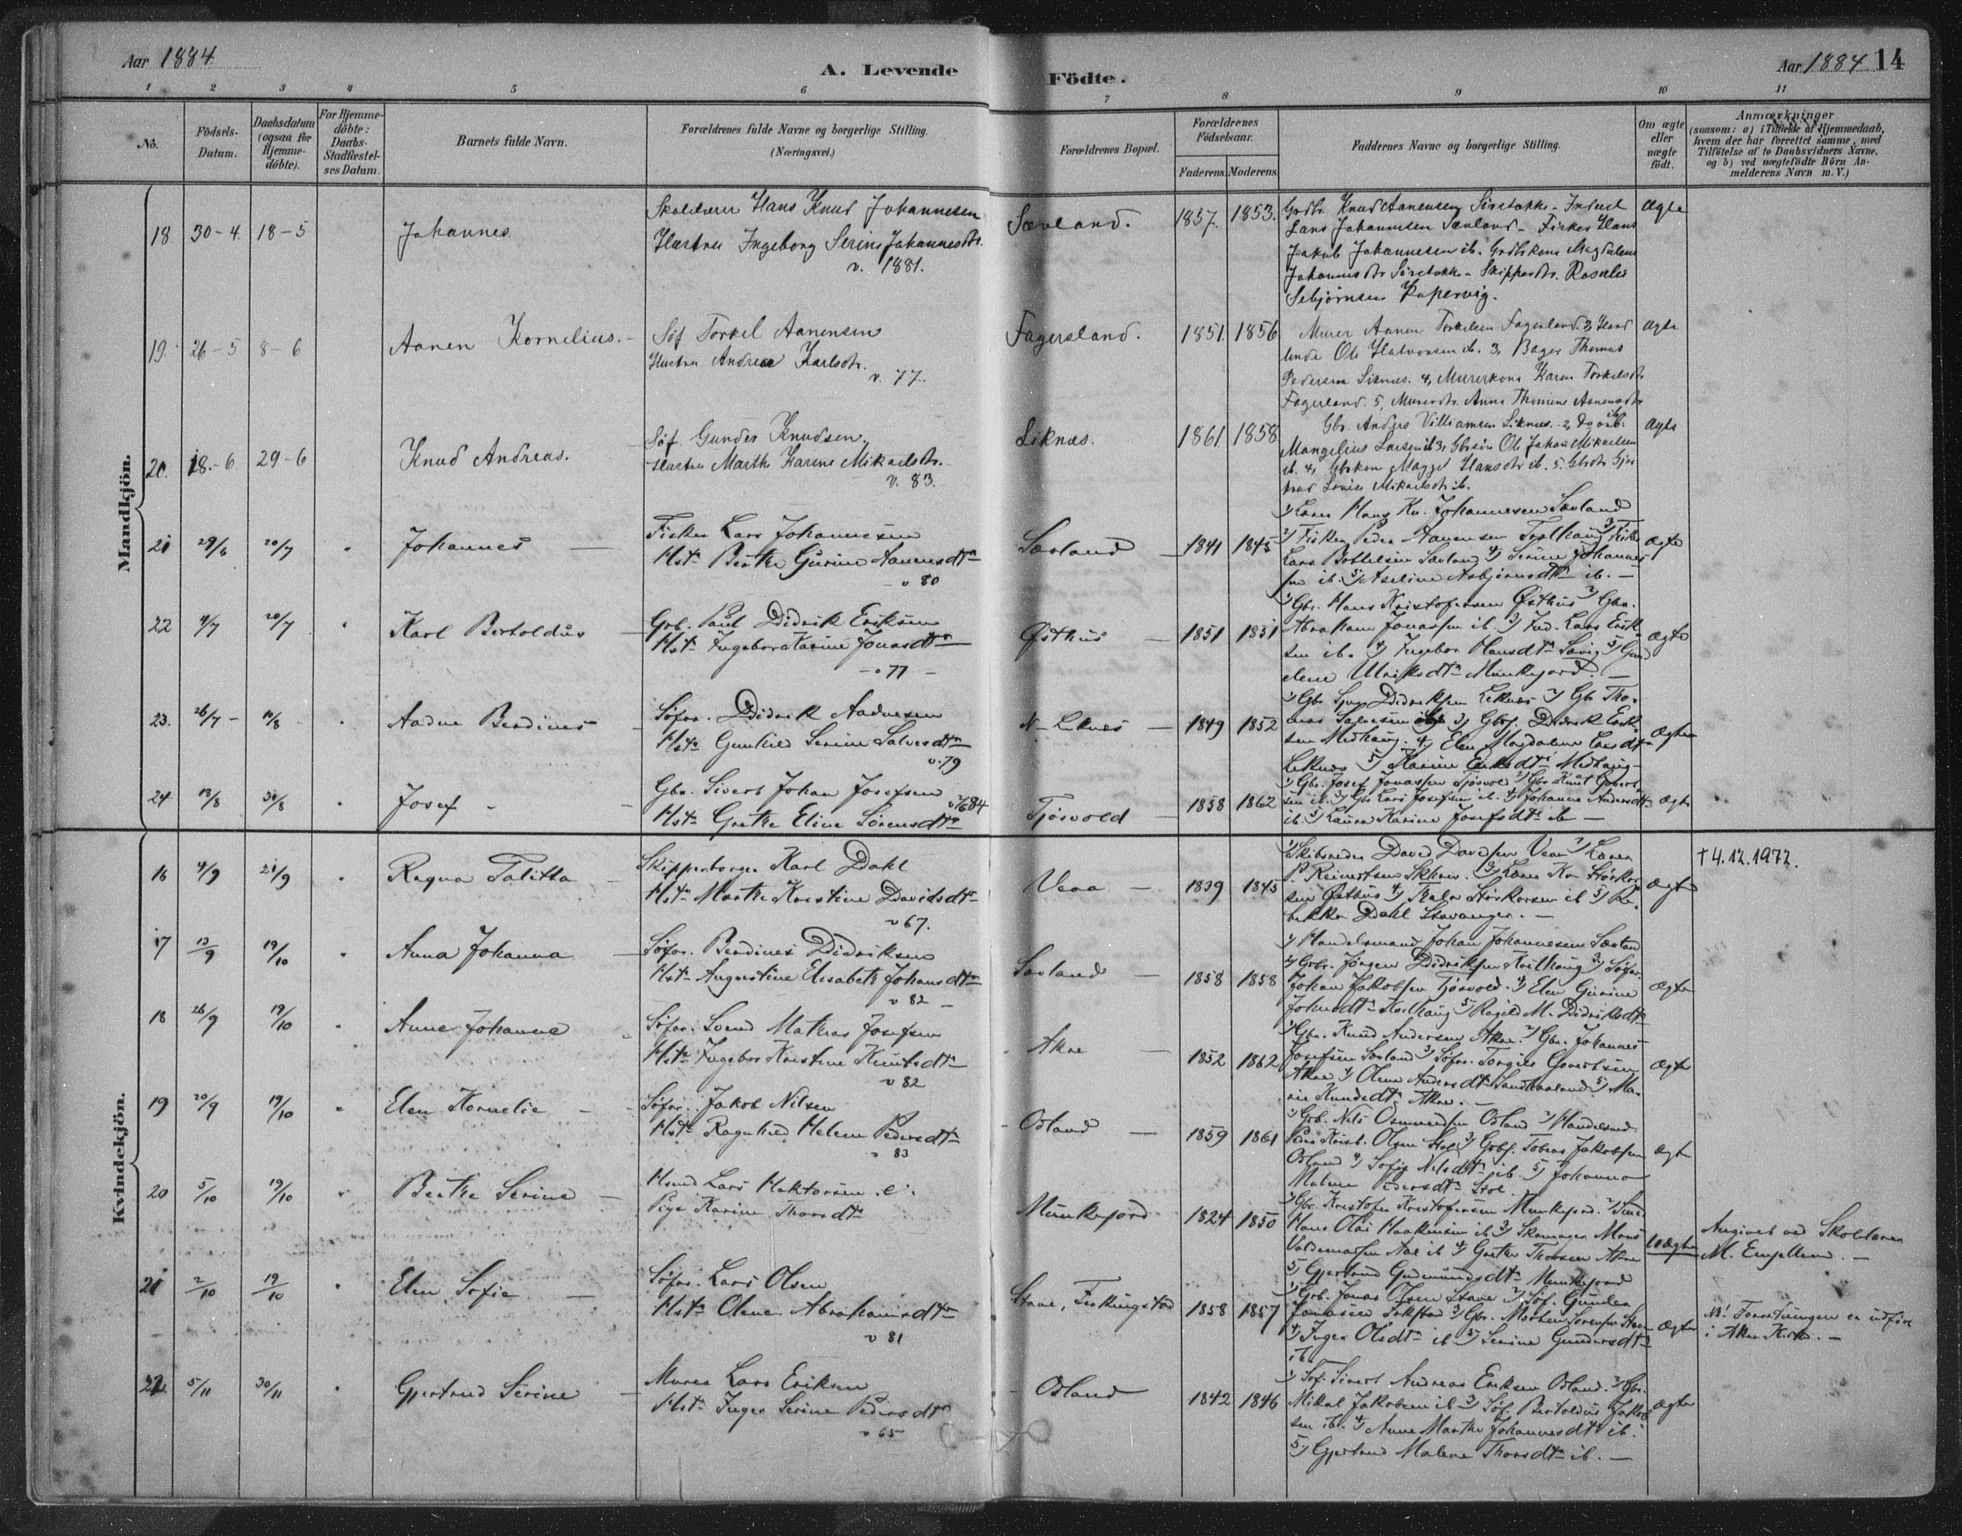 Aar 1884.
A. Levende Födte.
Aar 1884. 14
1 2 3 4 5 6 7 8 9 10 11
No.
Födsels-Datum.
Daabsdatum (ogsaa for Hjemme-döbte).
For Hjemme-döbte: Daabs-Stadfæstel-ses Datum.
Barnets fulde Navn.
Forældrenes fulde Navne og borgerlige Stilling. (Næringsvei.)
Forældrenes Bopæl.
Forældrenes Födselsaar.
Faderens. Moderens.
Faddernes Navne og borgerlige Stilling.
Om ægte eller uægte födt.
Anmærkninger
(saasom: a) i Tilfælde af Hjemmedaab, hvem der har forrettet samme, med Tilföielse af to Daabsvidners Navne, og b) ved uægtefödte Börn An-melderens Navn m. V.)
Mandkjön.
18 30-4. 18-5 Johannes.
Skolelærer Hans Knud Johannesen
Hustru Ingeborg Serine Johannesdtr.
v. 1881.
Sævland. 1857. 1853.
Grdbr. Knud Aanensen
Lars Johannesen Sævland - Fisker Hans
Jakob Johannesen ib. Grdbrkone Magdalene
Johannesdtr - Skipperdtr.
Ægte
19 26-5 8-6 Aanen Kornelius.
Søf Torkel Aanensen
Hustru Andrea Karlsdtr.
v. 77.
Fagerland. 1851. 1856
Murer Aanen Torkelsen Fagerland. 2,
Ole Halvorsen ib. 3, Thomas
Pedersen Liknæs. 4, Murerkone Karen Torkelsdtr
Fagerland. 5, Murerdtr. Anne Thomine Aanensdtr
ib.
Ægte
20. 18.-6. 29-6 Knud Andreas.
Søf. Gunder Knudsen.
Hustru Marthe Karine Mikaelsdtr.
v. 83.
Liknæs. 1861 1858
Gbr. Anders Villiamsen Liknæs. 2,
Mangelius Larsen ib 3, Gbrsøn Ole Johan Mikaelsen
ib. 4, Gbrkone Hansdtr ib. 5. Gbrdtr
Mikaelsdtr ib.
Ægte
21 29/6 20/7 " Johannes
Fisker Lars Johannesen
Hst. Berthe Gurine Aanensdtr
v 80
Sævland 1841 1845
1) Lærer Hans Kn. Johannesen Sævland
2) Fisker Peder Aanensen
Lars Sævland 4) Serine Johannes-
ib. 5) Aseline Asbjørnsdtr ib. -
Ægte
22 4/7 20/7 " Karl Bertoldus
Grb. Paul Didrik Eriksen
Hst. Ingebor Karine Jonasdtr
v 77
Østhus 1851 1851
1) Gbr. Hans Kristofersen Østhus 2) Gbr.
Abraham Jonassen ib. 3) Lars Erik-
sen ib. 4) Ingebor Hansdtr Sævig 5)
Ulriksdtr Munkejord. -
Ægte
23. 26/7 - " Aadne Berdines
Søfar. Didrik Aadnesen
Hst. Gunhild Serine Salvesdtr
v. 79
N- Leknes 1849 1852
1) Gbr Didriksen Leknes 2) Gbr Tho-
mas Salvesen 3) Gbrf. Didrik Erik-
sen Medhaug. 4) Elen Magdalene Larsdtr
Leknes 5) Karine Eriksdtr Medhaug -
Ægte
24 13/8 31/8 " Josef -
Gbr. Sivert Johan Josefsen
Hst. Grethe Eline Sørensdtr
Tjøsvold 1858 1862
1) Gbr. Josef Jonassen Tjøsvold 2) Gbr Knut
sen ib. 3) Gbr Lars Josefsen ib. 4) Johanne Andersdtr
ib. 5) Laura Karine Josefsdtr ib -
Ægte
Kvindekjön.
16 4/9 21/9 " Ragna Talitta
Skipper Karl Dahl
Hst. Marthe Kristine Davidsdtr
v 67.
Veaa 1839 1845
1) Skibsreder David Davidsen Veaa 2) Lærer
P. Reinertsen 3) Lærer
sen Østhus 4) ib 5) Re-
bekka Dahl Stavanger. -
Ægte
† 4.12.1972.
17 13/9 19/10 " Anna Johanna
Søfar. Berdines Didriksen
Hst. Augustine Elisabeth Johansdtr
v 82 -
Sævland 1858 1858
1) Handelsmand Johan Johannesen Sævland
2) Grbr. Jørgen Didriksen 3) Søfar.
Johan Jakobsen Tjøsvold 4) Elen Gurine
Johnsdtr 5) Ragild M. Didriksdtr
Ægte
18 26/9 19/10 " Anne Johanne
Søfar. Svend Mathias Josefsen
Hst. Ingebor Kristine Knutsdtr
v 82
Akre 1852 1862
1) Gbr. Knud Andersen Akre. 2) Gbr. Johannes
Josefsen Sævland 3) Søfar. Torgils Govertsen
Akre 4) Olene Andersdtr Sandhaaland 5) Ma-
rie Knudsdtr Akre. -
Ægte
19 20/9 19/10 " Elen Kornelie
Søfar. Jakob Nilsen
Hst. Ragnhild Helene Pedersdtr
v 83
Osland 1859 1861
1) Grb. Nils Osmundsen Osland 2) Handelsmd.
Olsen Stol 3) Grbf. Tobias Jakobsen
Osland 4) Sofie Nilsdtr ib. 5) Johanna
Malene Pedersdtr Stol.
Ægte
20 5/10 19/10 " Berthe Serine
Lars Haktorsen
Pige Karine Thorsdtr
Munkejord 1824 1850
1) Gbr. Kristofer Kristofersen Munkejord. 2)
Hans Olai Haakensen ib 3) Skomager Mons
Valdemarsen Aae ib 4) Grethe Thorsen Akre
5) Gjertrud Gudmundsdtr Munkejord
Uægte
Angivet ved Skolelærer
M. Engellsen. -
21 2/10 19/10 " Elen Sofie
Søfar. Lars Olsen
Hst. Olene Abrahamsdtr
v 81
Stave, Ferkingstad 1858 1857
1) Grb. Jonas Olsen Stave 2) Søf. Gunder
Jonassen 3) Gbr. Morten Sørensen
4) Inger Olsdtr ib 5) Serine Gundersdtr
ib.
Ægte
NB! Forretningen er udført
i Akre Kirke. -
22. 5/11 30/11 " Gjertrud Serine
Murer Lars Eriksen
Hst. Inger Serine Pedersdtr
v 65
Osland 1842 1846
1) Søf. Sivert Andreas Eriksen Osland. 2) Gbr.
Mikal Jakobsen ib 3) Søf. Bertoldus Jakob-
sen ib. 4) Anne Marthe Johannesdtr ib.
5) Gjertrud Malene Thorsdtr ib. -
Ægte